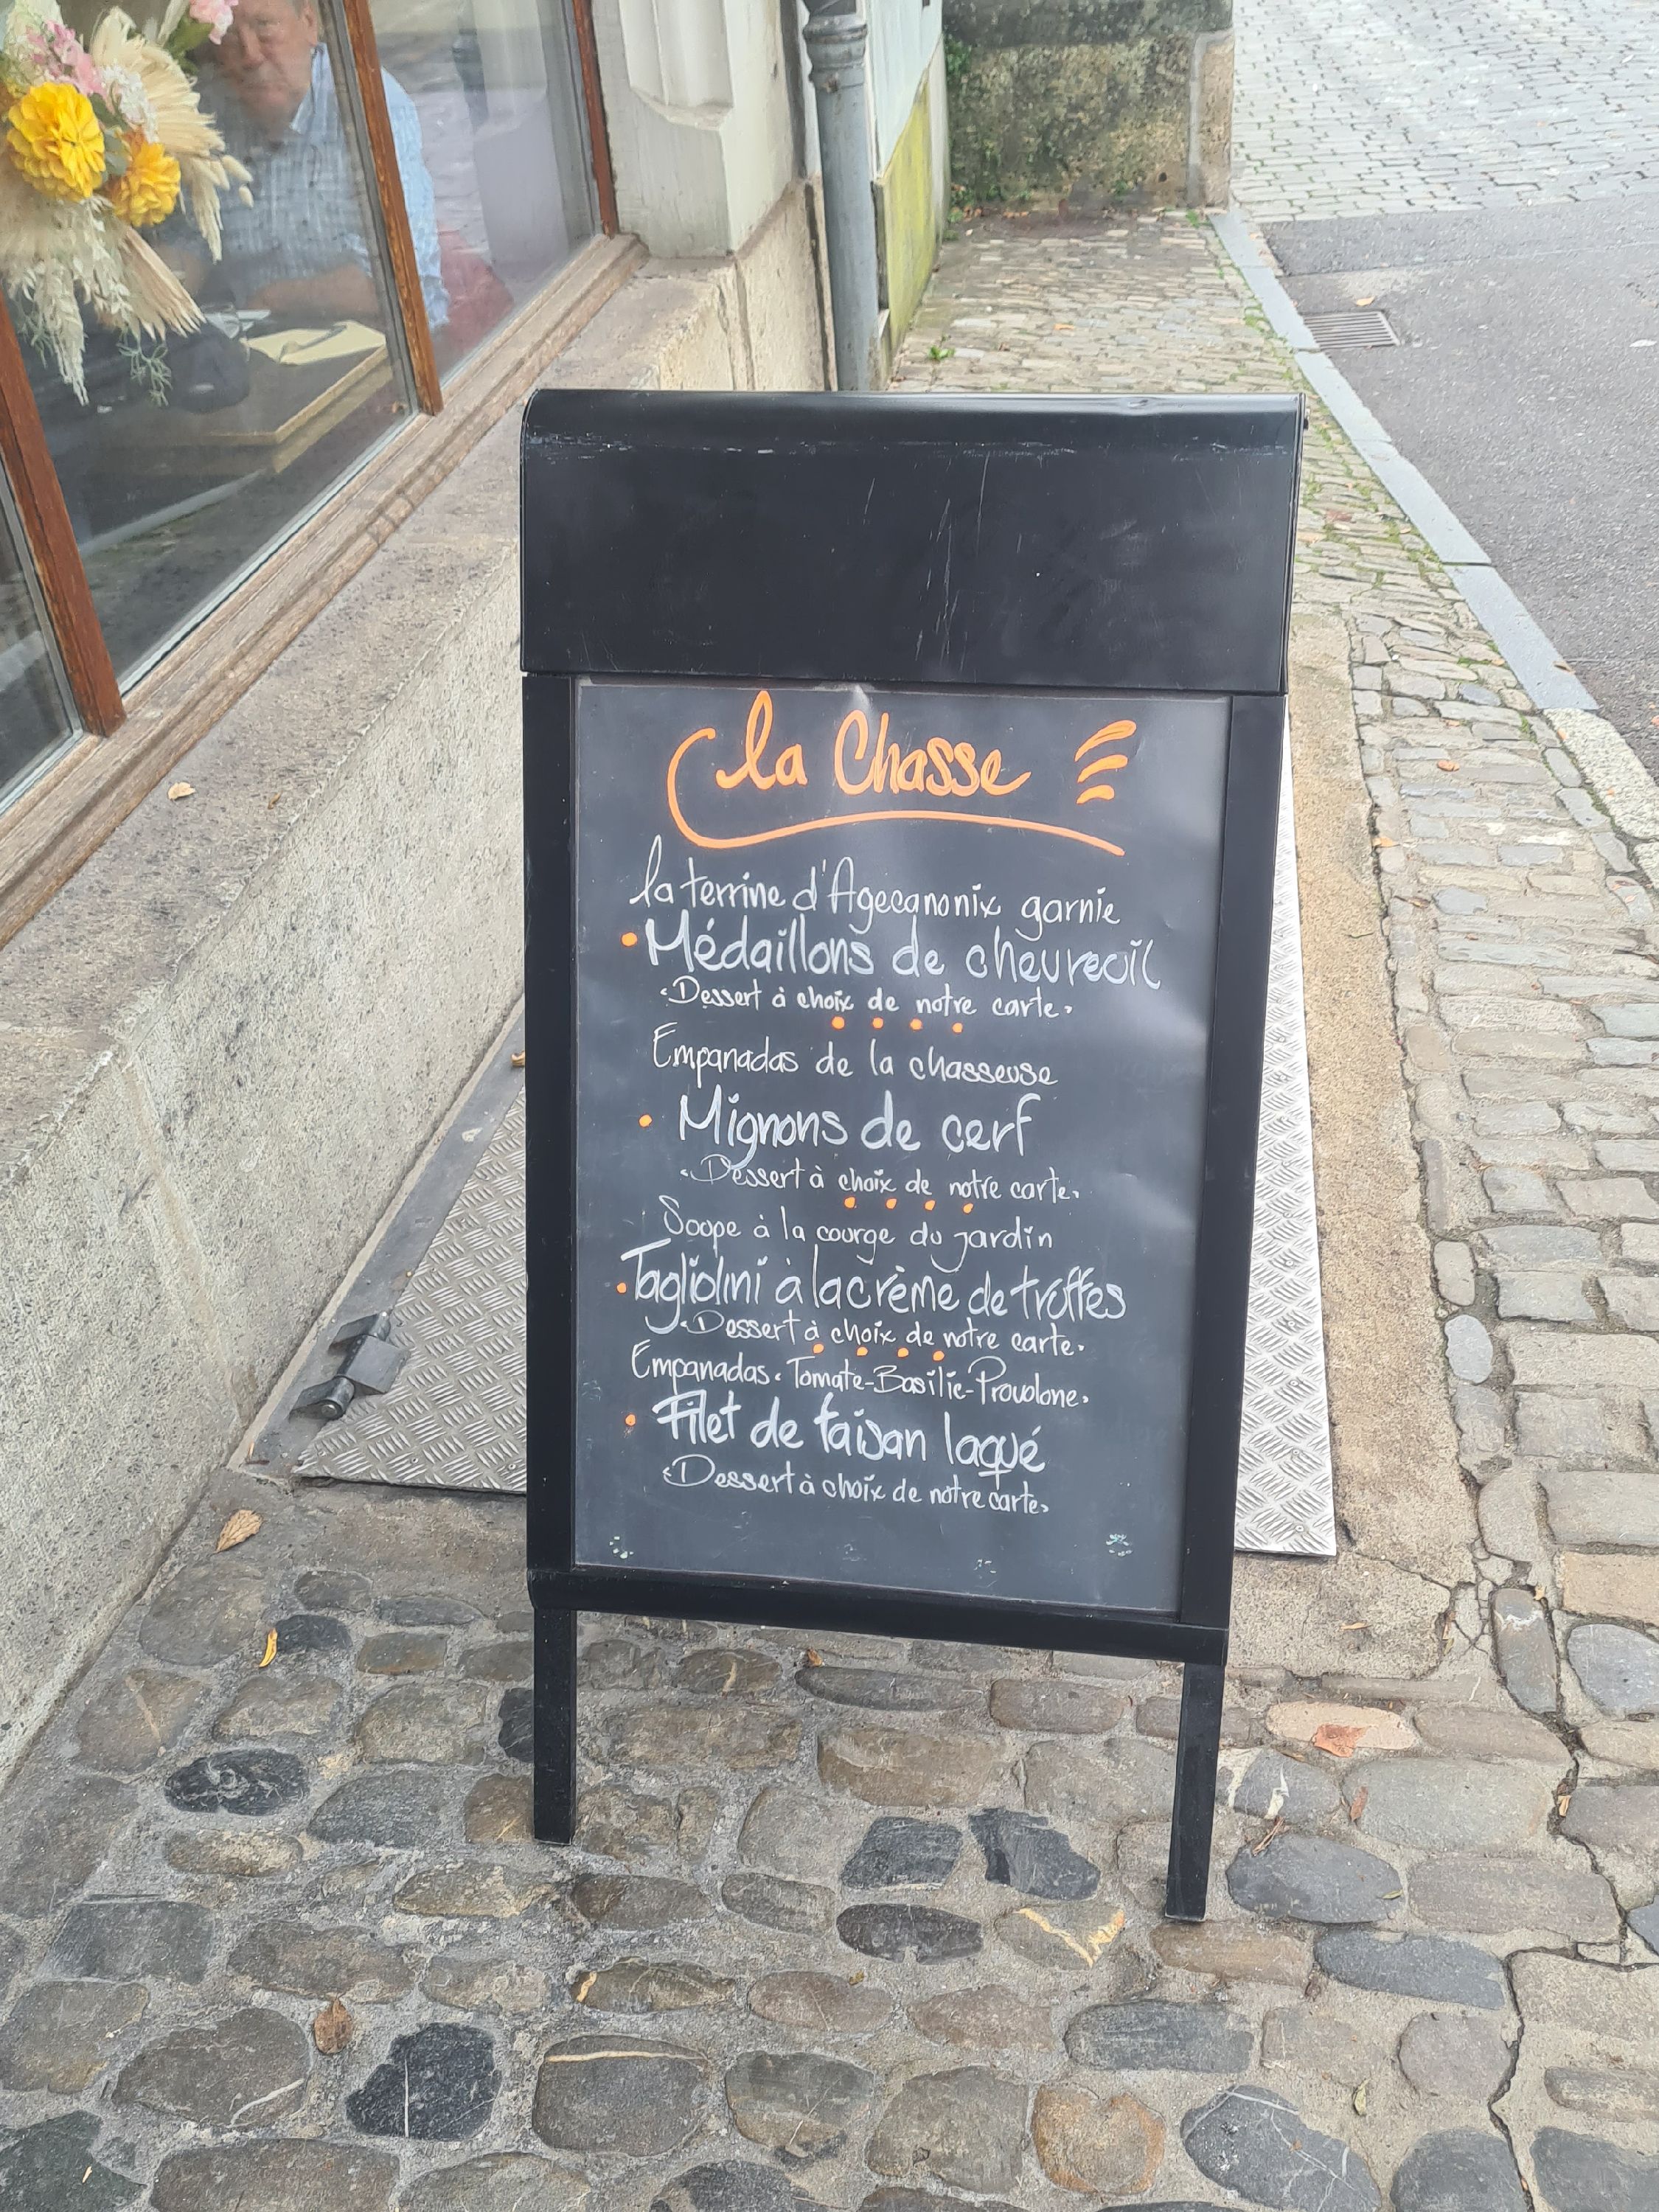 la Chasse
la terrine d'Agecanonix garnie
• Médaillons de chevreuil
"Dessert à choix de notre carte"
• • • •
Empanadas de la chasseuse
• Mignons de cerf
"Dessert à choix de notre carte"
• • • •
Soupe à la courge du jardin
• Tagliolini à la crème de truffes
"Dessert à choix de notre carte"
• • • •
Empanadas "Tomate-Basilic-Provolone"
• Filet de faisan laqué
"Dessert à choix de notre carte"